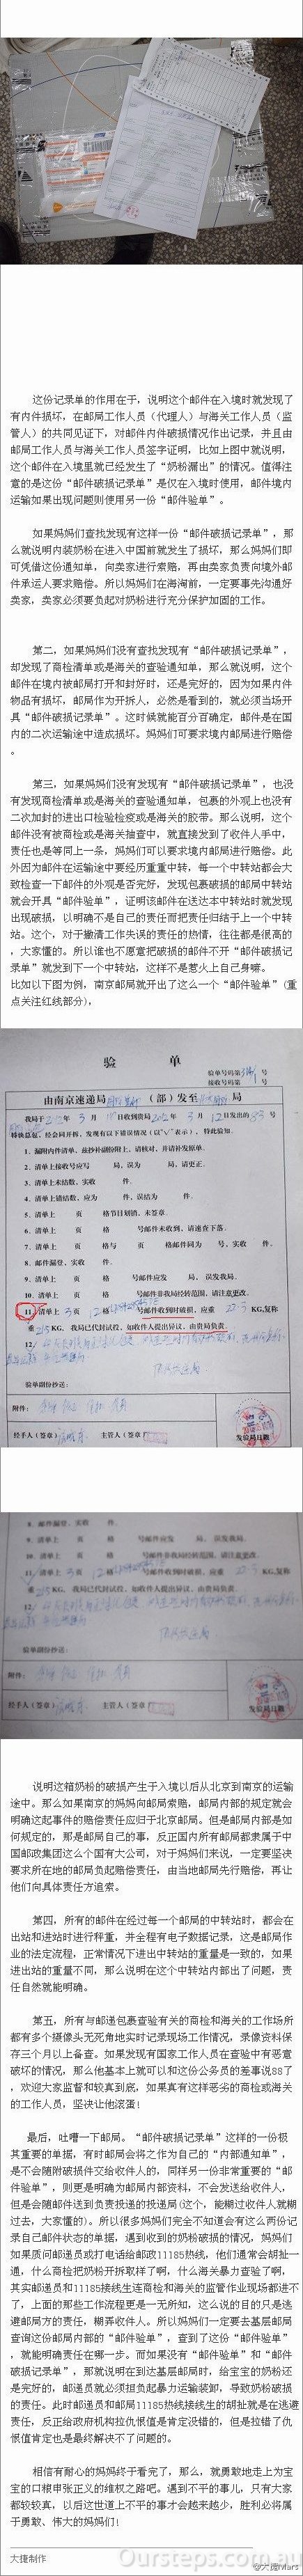 这份记录单的作用在于，说明这个邮件在入境时就发现了
有内件损坏，在邮局工作人员（代理人）与海关工作人员（监
管人）的共同见证下，对邮件内件破损情况作出记录，并且由
邮局工作人员与海关工作人员签字证明，比如上图中就说明，
这个邮件在入境里就已经发生了“奶粉漏出”的情况。值得注
意的是这份“邮件破损记录单”是仅在入境时使用，邮件境内
运输如果出现问题则使用另一份“邮件验单”。
如果妈妈们查找发现有这样一份“邮件破损记录单”，那
么就说明内装奶粉在进入中国前就发生了损坏，那么妈妈们即
可凭借这份通知单，向卖家进行索赔，再由卖家负责向境外邮
件承运人要求赔偿。所以妈妈们在海淘前，一定要事先沟通好
卖家，卖家必须要负起对奶粉进行充分保护加固的工作。
第二，如果妈妈们没有查找发现有“邮件破损记录单”，
却发现了商检清单或是海关的查验通知单，那么就说明，这个
邮件在境内被邮局打开和封好时，还是完好的，因为如果内件
物品有损坏，邮局作为开拆人，必然是看到的，就必须当场开
具“邮件破损记录单”。这时候就能百分百确定，邮件是在国
内的二次运输途中造成损坏。妈妈们可要求境内邮局进行赔偿
。
第三，如果妈妈们没有发现有“邮件破损记录单”，也没
有发现商检清单或是海关的查验通知单，包裹的外观上也没有
二次加封的进出口检验检疫或是海关的胶带。那么说明，这个
邮件没有被商检或是海关抽查中，就直接发到了收件人手中，
责任也是等同上一条，妈妈们可以要求境内邮局进行赔偿。此
外因为邮件在运输途中要经历重重中转，每一个中转站都会大
致检查一下邮件的外观是否完好，发现包裹破损的邮局中转站
就会开具“邮件验单”，证明该邮件在送达本中转站时就发现
出现破损，以明确不是自己的责任而把责任归结于上一个中转
站。这个，对于撇清工作失误的责任的热情，往往都是很高的
，大家懂的。所以谁也不愿意把破损的邮件不开“邮件破损记
录单”就发到下一个中转站，这样不是惹火上自己身嘛。
比如以下图为例，南京邮局就开出了这么一个“邮件验单”(重
点关注红线部分)，
验 单
验单号码第 号
接收号码第 号
由南京速递局 （部）发至 局
我局于2012年 3 月 日收到贵局 2012 年 3 月 12 日发出的 83 号
特快总包，经会同开拆，发现有以下错误情况（以“√”表示），特此验知。
1．漏附内件清单，兹抄补副份附上，请核对，并请补发原单。
2．清单上接收号应写 局，误为 局，请更正。
3．清单上未结数，实收 件。
4．清单上错结数，应为 件，误结为 件。
5．清单上 页 格节目划销，未签章。
6．清单上 页 格 号邮件未收到，请速查下落。
7．清单上 页 格与 页 格邮件同为 号，实收 件。
8．邮件漏登，实收 件。
9．清单上 页 格 号邮件应发 局，误发我局。
10．清单上 页 格 号邮件非我局经转范围，请注意更改。
11．清单上 3 页 12 格 号邮件收到时破损，应重 22.3 KG，复称
重 21.5 KG，我局已代封试投，如收件人提出异议，由贵局负责。
12．
验单副份抄送：
附件：
经手人（签章） 主管人（签章）
发验局日戳
8．邮件漏登，实收 件。
9．清单上 页 格 号邮件应发 局，误发我局。
10．清单上 页 格 号邮件非我局经转范围，请注意更改。
11．清单上 3 页 12 格 号邮件收到时破损，应重 22.3 KG，复称
重 21.5 KG，我局已代封试投，如收件人提出异议，由贵局负责。
12．
验单副份抄送：
附件：
经手人（签章） 主管人（签章）
发验局日戳
说明这箱奶粉的破损产生于入境以后从北京到南京的运输
途中。那么如果南京的妈妈向邮局索赔，邮局内部的规定就会
明确这起事件的赔偿责任应归于北京邮局。但是邮局内部是如
何规定的，那是邮局自己的事，反正国内所有邮局都隶属于中
国邮政集团这么个国有大公司，对于妈妈们来说，一定要坚决
要求所在地的邮局负起赔偿责任，由当地邮局先行赔偿，再让
他们向具体责任方追索。
第四，所有的邮件在经过每一个邮局的中转站时，都会在
出站和进站时进行秤重，并全程有电子数据记录，这是邮局作
业的法定流程，正常情况下进出中转站的重量是一致的，如果
进出站的重量不同，那么说明在这个中转站内部出了问题，责
任自然就能明确。
第五，所有与邮递包裹查验有关的商检和海关的工作场所
都有多个摄像头无死角地实时记录现场工作情况，录像资料保
存三个月以上备查。如果发现有国家工作人员在查验中有恶意
破坏的情况，那么他基本上就可以和这份公务员的差事说88了
，欢迎大家监督和较真到底，如果真有这样恶劣的商检或海关
的工作人员，坚决让他滚蛋！
最后，吐嘈一下邮局。“邮件破损记录单”这样的一份极
其重要的单据，有时邮局会将之作为自己的“内部通知单”，
是不会随附破损件交给收件人的，同样另一份非常重要的“邮
件验单”，则更是明确为邮局内部资料，不会发送给收件人，
但是会随邮件送到负责投递的投递局(这个，能糊过收件人就糊
过去，大家懂的)。所以很多妈妈们完全不知道会有这么两份记
录自己邮件状态的单据，遇到收到的奶粉破损的情况，妈妈们
如果质问邮递员或打电话给邮政11185热线，他们通常会胡扯一
通，什么商检把奶粉开拆取样了啊，什么海关暴力查验了啊，
其实邮递员和11185接线生连商检和海关的监管作业现场都进不
了，上面的那些工作流程更是一无所知，这么说的目的只是逃
避邮局方的责任，糊弄收件人。所以妈妈们一定要去基层邮局
查询这份邮局内部的“邮件验单”，查到了这份“邮件验单”
，就能明确责任在哪一步。而如果没有“邮件验单”和“邮件
破损记录单”，那就说明在到达基层邮局时，给宝宝的奶粉还
是完好的，邮递员就必须担负起暴力运输装卸，导致奶粉破损
的责任。此时邮递员和邮局11185热线接线生的胡扯就是在逃避
责任，反正给政府机构拉仇恨值是肯定没错的，但是拉错了仇
恨值肯定也是最终解决不了问题的。
相信有耐心的妈妈终于看完了，那么，就勇敢地走上为宝
宝的口粮申张正义的维权之路吧。遇到不平的事儿，只有大家
都较较真，以后这世道上不平的事才会越来越少，胜利必将属
于勇敢、伟大的妈妈们！
大捷制作
Oursteps.com.au
@大捷Mars